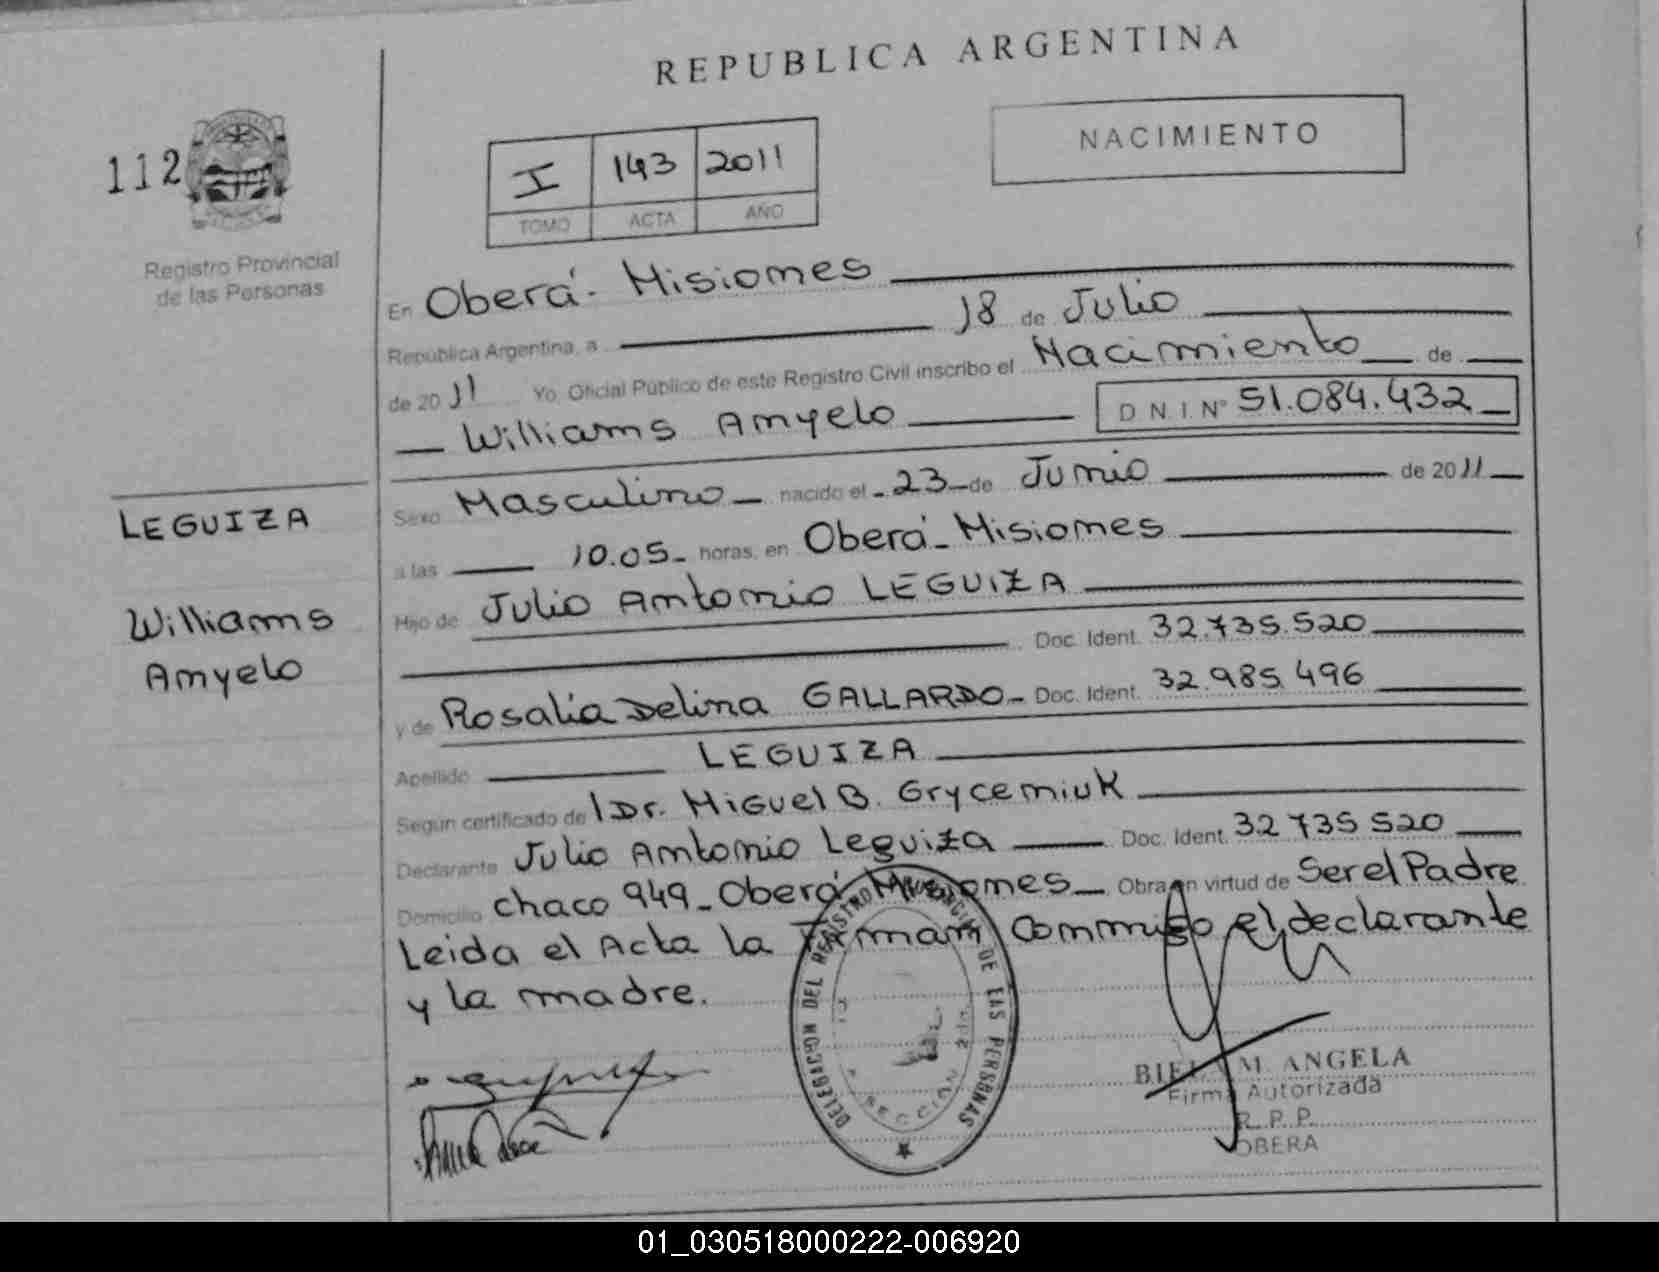 REPUBLICA ARGENTINA
NACIMIENTO
112
I 143 2011
TOMO ACTA AÑO
Registro Provincial
de las Personas
En Oberá - Misiones
República Argentina, a 18 de Julio
de 2011 Yo, Oficial Público de este Registro Civil inscribo el Nacimiento de
Williams Amyelo D.N.I. Nº 51.084.432
Sexo Masculino nacido el 23 de Junio de 2011
a las 10.05 horas, en Oberá - Misiones
Hijo de Julio Antonio LEGUIZA
Doc. Ident. 32.735.520
y de Rosalia Delina GALLARDO Doc. Ident. 32.985.496
Apellido LEGUIZA
Según certificado de Dr. Miguel B. Grycemiuk
Declarante Julio Antonio Leguiza Doc. Ident. 32 735 520
Domicilio Chaco 949 - Oberá Misiones Obra en virtud de Ser el Padre
Leida el Acta la Firman Conmigo el declarante
y la madre.
LEGUIZA
Williams
Amyelo
DELEGACION DEL REGISTRO PROVINCIAL DE LAS PERSONAS
SECCION 2da
M. ANGELA
Firma Autorizada
R.P.P.
OBERA
01_030518000222-006920